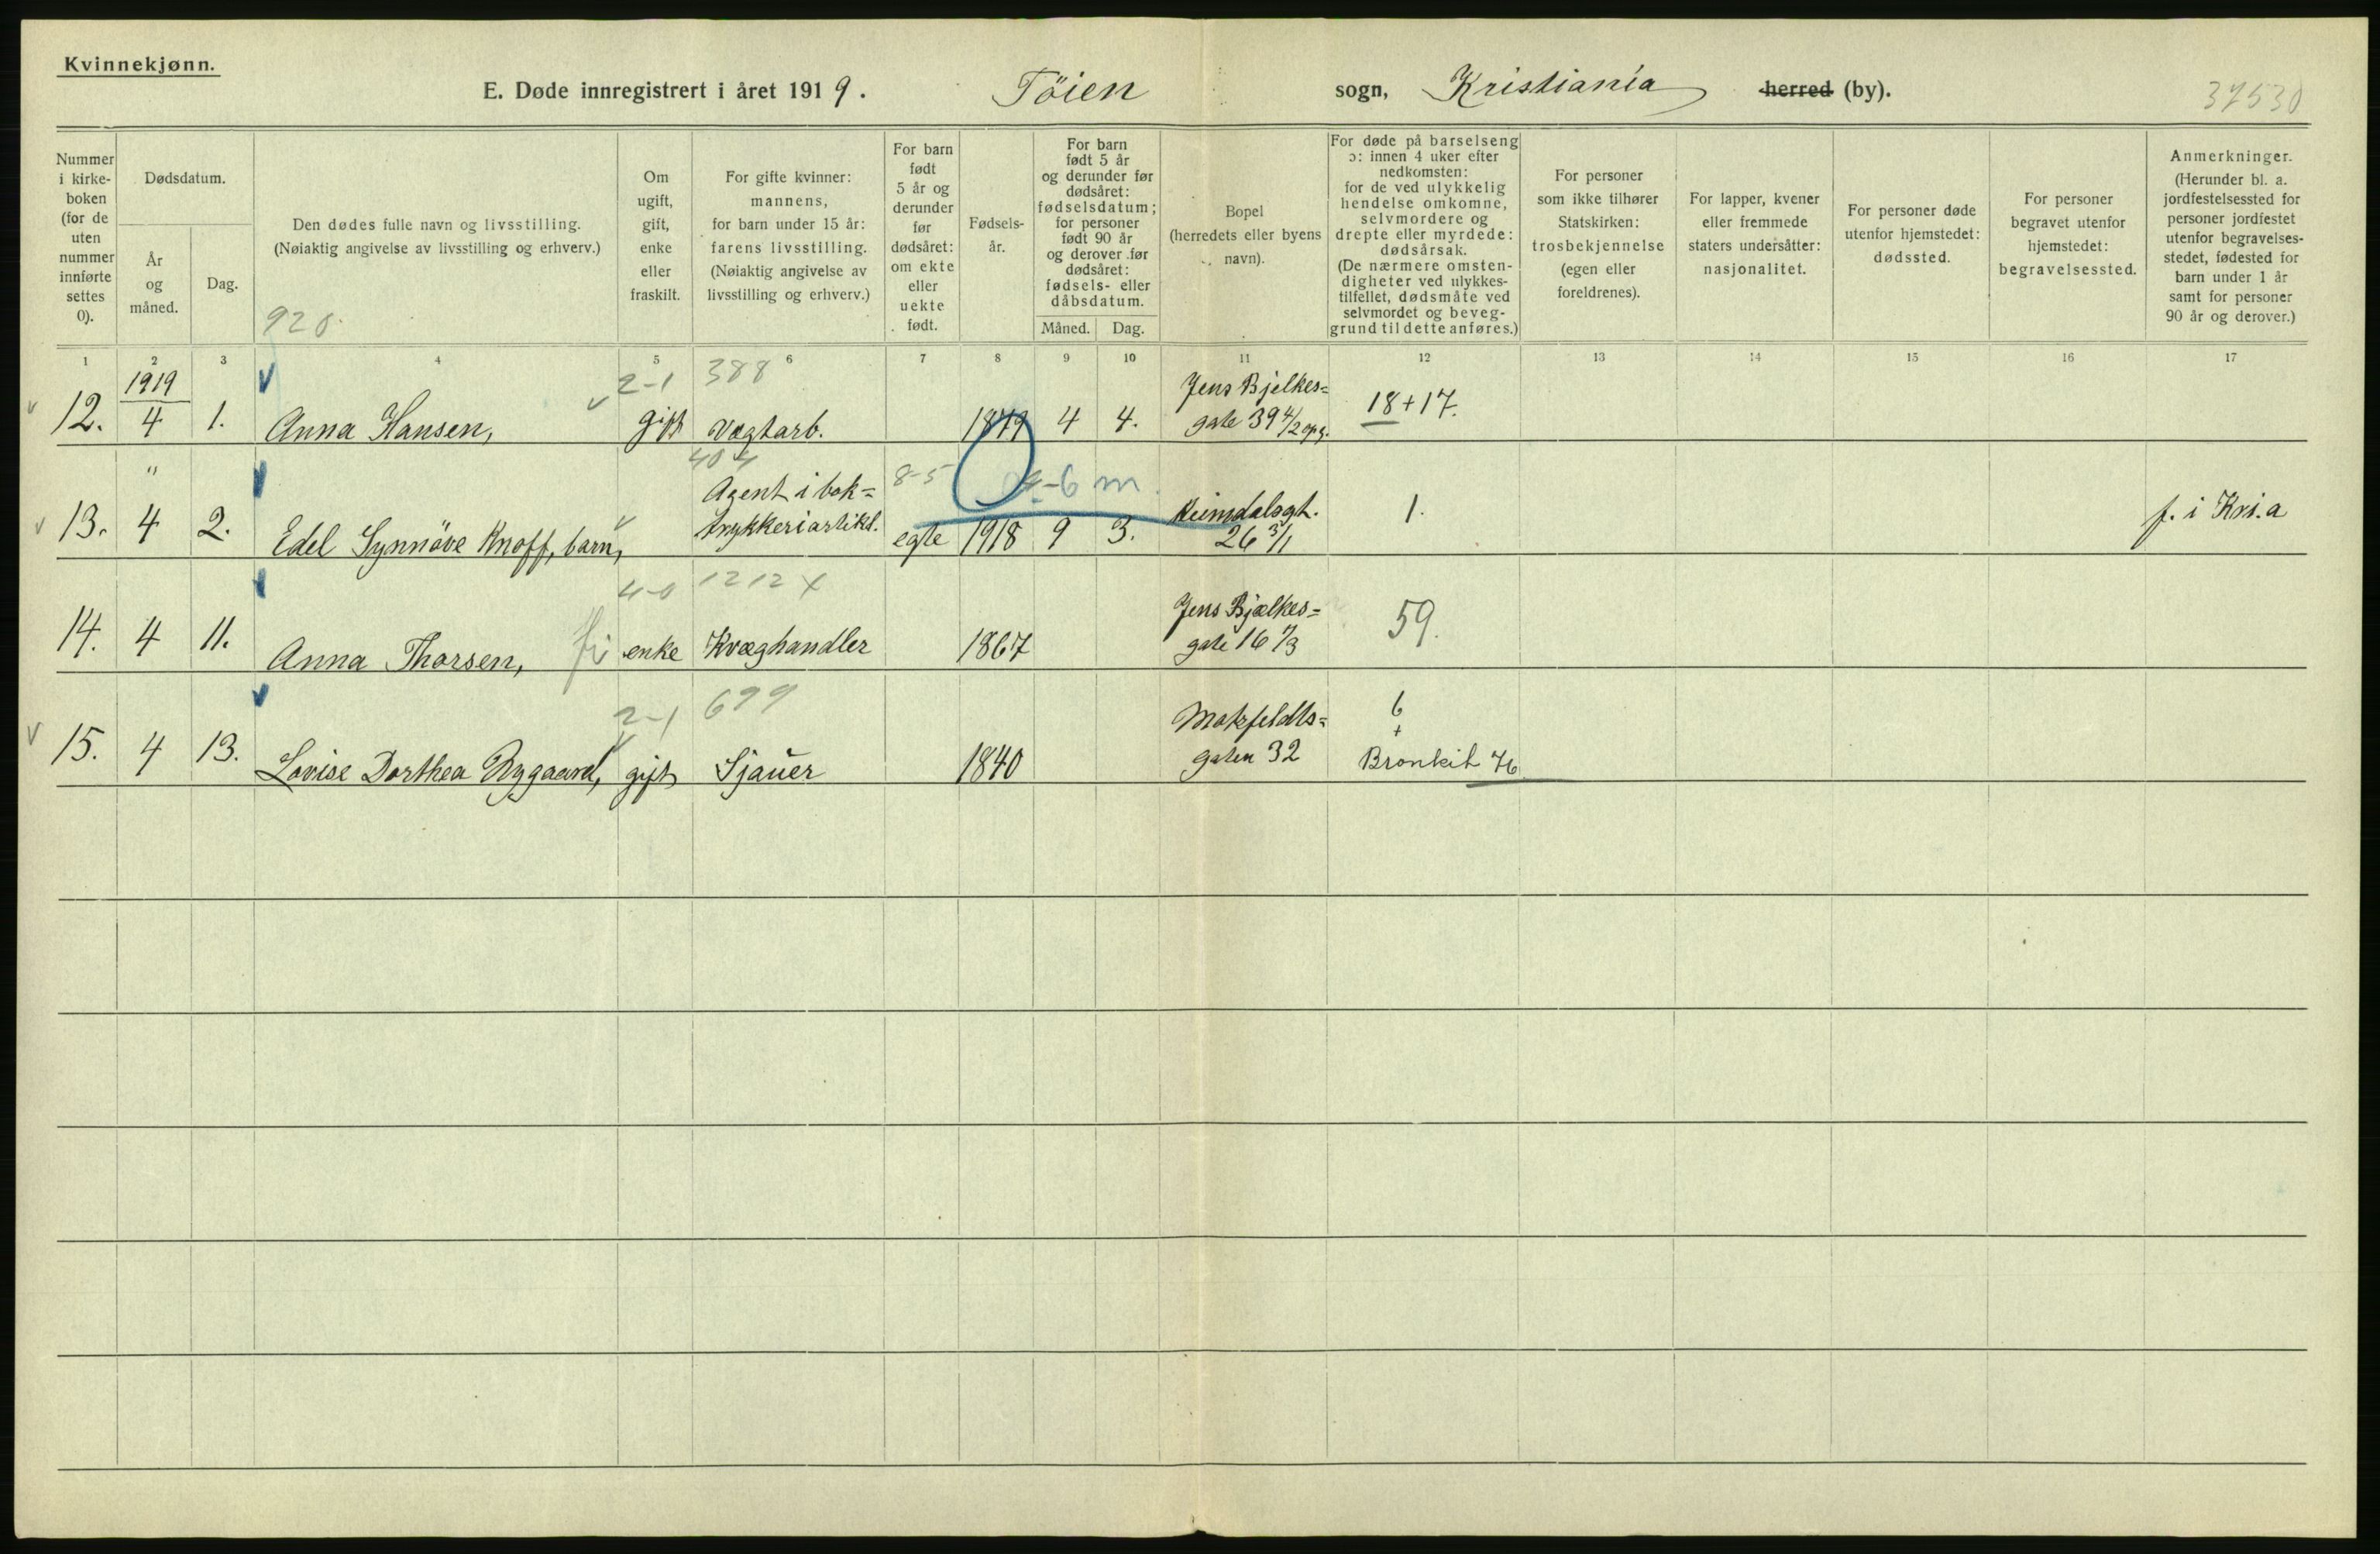 Kvinnekjønn.
E. Døde innregistrert i året 1919. Töien sogn, Kristiania herred (by).
37530
Nummer
i kirke-
boken
(for de
uten
nummer
innførte
settes
0).
Dødsdatum.
År
og
måned.
Dag.
Den dødes fulle navn og livsstilling.
(Nøiaktig angivelse av livsstilling og erhverv.)
920.
Om
ugift,
gift,
enke
eller
fraskilt.
For gifte kvinner:
mannens,
for barn under 15 år:
farens livsstilling.
(Nøiaktig angivelse av
livsstilling og erhverv.)
For barn
født
5 år og
derunder
før
dødsåret:
om ekte
eller
uekte
født.
Fødsels-
år.
For barn
født 5 år
og derunder før
dødsåret:
fødselsdatum;
for personer
født 90 år
og derover før
dødsåret:
fødsels- eller
dåbsdatum.
Måned. Dag.
Bopel
(herredets eller byens
navn).
For døde på barselseng
ɔ: innen 4 uker efter
nedkomsten:
for de ved ulykkelig
hendelse omkomne,
selvmordere og
drepte eller myrdede:
dødsårsak.
(De nærmere omsten-
digheter ved ulykkes-
tilfellet, dødsmåte ved
selvmordet og beveg-
grund til dette anføres.)
For personer
som ikke tilhører
Statskirken:
trosbekjennelse
(egen eller
foreldrenes).
For lapper, kvener
eller fremmede
staters undersåtter:
nasjonalitet.
For personer døde
utenfor hjemstedet:
dødssted.
For personer
begravet utenfor
hjemstedet:
begravelsessted.
Anmerkninger.
(Herunder bl. a.
jordfestelsessted for
personer jordfestet
utenfor begravelses-
stedet, fødested for
barn under 1 år
samt for personer
90 år og derover.)
1 2 3 4 5 6 7 8 9 10 11 12 13 14 15 16 17
1919 2-1 388 Jens Bjelkes=
12. 4 1. Anna Hansen, gift Vægtarb. 1879 4 4. gate 39 4/2 opg. 18+17.
" 404 8-5 6 m.
Agent i bok=
13. 4 2. Edel Synnöve Knoff, barn, trykkeriartikl. egte 1918 9 3. Heimdalsgt. 1. f. i Kri.a
26 3/1
4-0 1212 x Jens Bjælkes=
14. 4 11. Anna Thorsen, enke Kvæghandler 1867 gate 16 1/3 59.
2-1 699 Motzfeldts= 6
+
15. 4 13. Lovise Dorthea Rygaard, gift Sjauer 1840 gaten 32 Bronkit 76